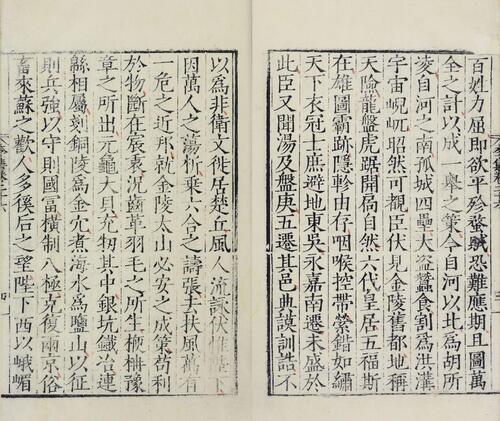 百姓力屈即欲平殄蝥賊恐難應期且圖萬
全之計以成一舉之策今自河以北為胡所
凌自河之南孤城四壘大盜蠶食割為洪溝
宇宙峴屼昭然可覩臣伏見金陵舊都地稱
天險龍盤虎踞開扃自然六代皇居五福斯
在雄圖霸跡隱軫由存咽喉控帶縈錯如繡
天下衣冠士庶避地東吳永嘉南遷未盛於
此臣又聞湯及盤庚五遷其邑典謨訓誥不
以為非衛文徙居楚丘風人流詠伏惟陛下
因萬人之蕩析乘六合之譸張去扶風萬有
一危之近邦就金陵太山必安之成策苟利
於物斷在宸衷況齒革羽毛之所生楩楠豫
章之所出元龜大貝充牣其中銀坑鐵冶連
緜相屬剗銅陵為金穴煮海水為鹽山以征
則兵強以守則國富橫制八極克復兩京俗
畜來蘇之歡人多徯后之望陛下西以峨嵋